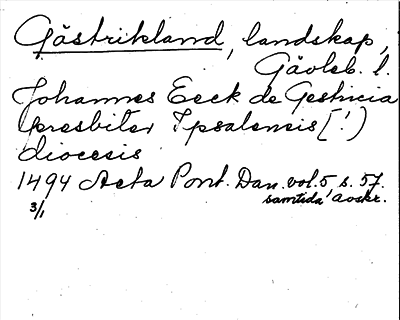 Gästrikland, landskap,
Gävleb. l.
Johannes Eeck de Gestricia
presbiter Ipsalensis [!)
diocesis
1494 Acta Pont. Dan. vol. 5, s. 57.
3/1 samtida avskr.